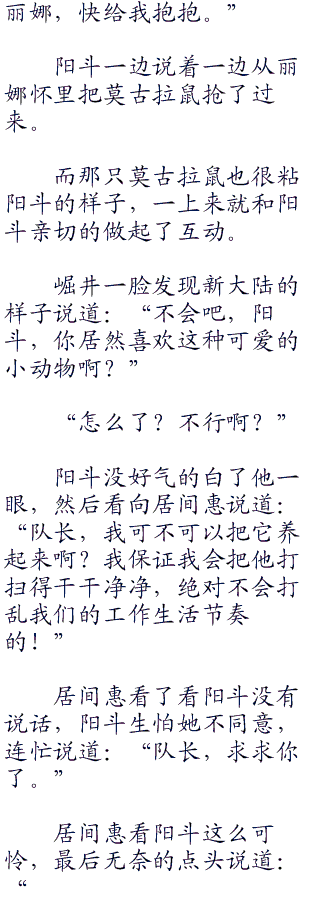 丽娜，快给我抱抱。”
阳斗一边说着一边从丽
娜怀里把莫古拉鼠抢了过
来。
而那只莫古拉鼠也很粘
阳斗的样子，一上来就和阳
斗亲切的做起了互动。
崛井一脸发现新大陆的
样子说道：“不会吧，阳
斗，你居然喜欢这种可爱的
小动物啊？”
“怎么了？不行啊？”
阳斗没好气的白了他一
眼，然后看向居间惠说道：
“队长，我可不可以把它养
起来啊？我保证我会把他打
扫得干干净净，绝对不会打
乱我们的工作生活节奏
的！”
居间惠看了看阳斗没有
说话，阳斗生怕她不同意，
连忙说道：“队长，求求你
了。”
居间惠看阳斗这么可
怜，最后无奈的点头说道：
“